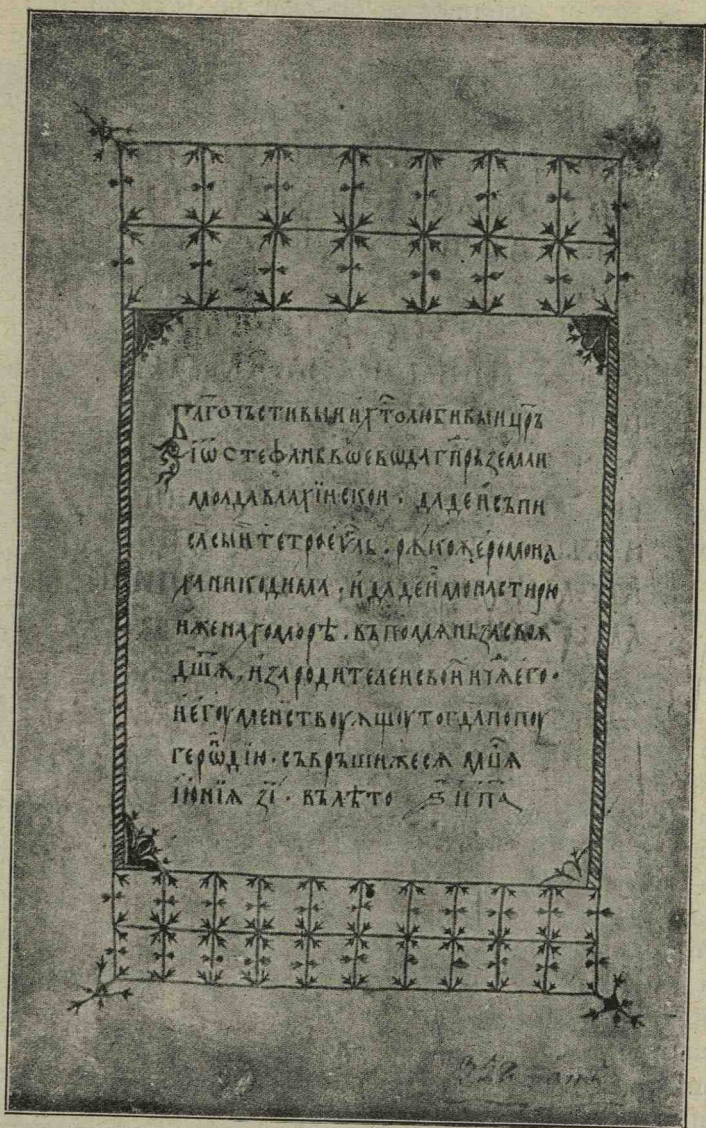 Блг҃очьстивыи и хс҃толюбивыи цр҃ь
Іѡ Стефань вѡевѡда гп҃рь земли
молдавлахїискои · даде и съпи
са сыи тетроеѵ҃ль · рѫкоѫ еромона
ха никодима · и даде и монастирю
иже на хоморѣ · въ помѧнь за своѫ
дш҃ѫ, и за родителеи свои и
и егоуменствоуѫщоу тогда попоу
герѡ҃нтїю · съвръши же сѧ мц҃а
іюнїа з҃і · въ лѣто ҂ѕ҃ц п҃а